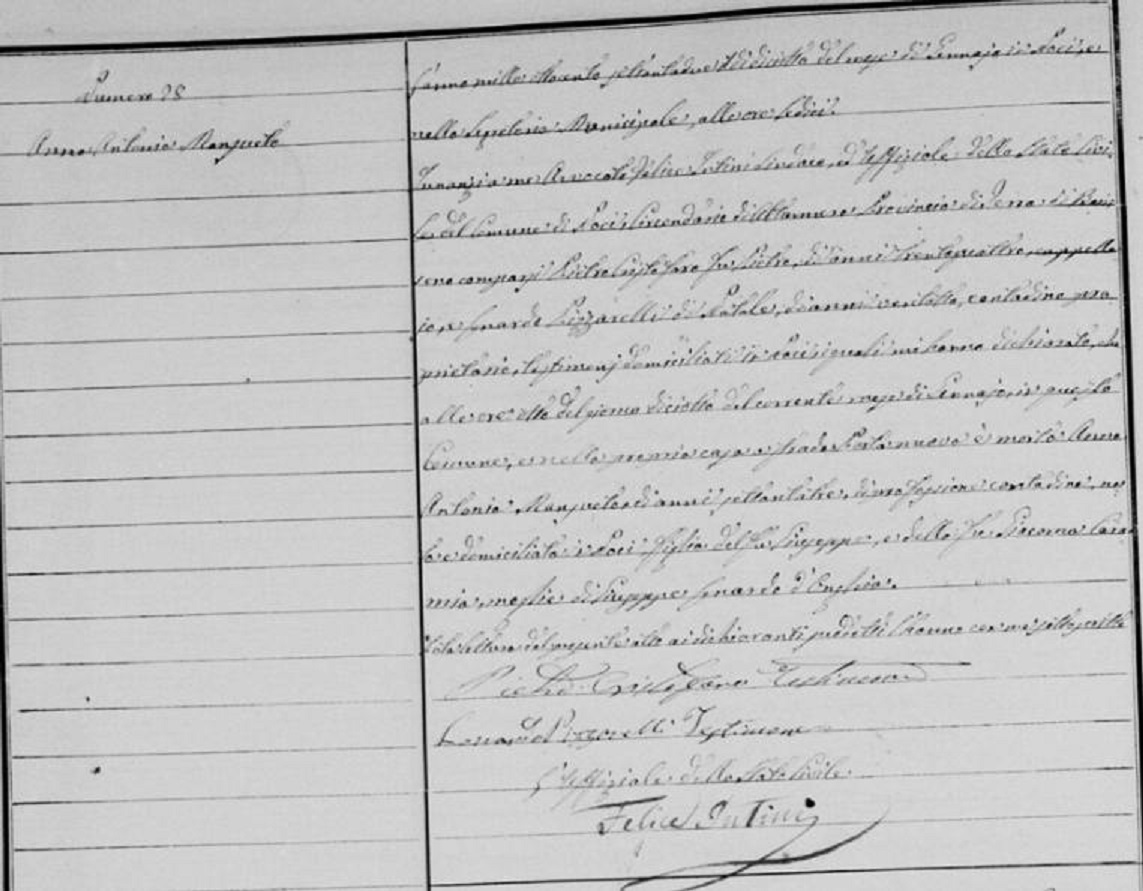 Numero 28
Anna Antonia Mangueta
L'anno mille ottocento settantadue il dì diciotto del mese di Gennajo in Noci, e
nella Segreteria Municipale, alle ore sedici.
Innanzi a me Avvocato Felice Intini Sindaco, ed Uffiziale dello Stato Civi-
le del Comune di Noci Circondario di Altamura Provincia di Terra di Bari
sono comparsi Pietro Cristofaro fu Pietro, di anni trentaquattro, cappella
io, e Lonardo Lizzarelli di Natale, di anni ventotto, contadino pro
prietario, testimonj domiciliati in Noci i quali mi hanno dichiarato, che
alle ore otto del giorno diciotto del corrente mese di Gennajo, in questo
Comune, e nella propria casa a strada Porta nuova è morta Anna
Antonia Mangueta di anni settantatre, di professione contadina, na
ta e domiciliata in Noci figlia del fu Giuseppe, e della fu Giacoma
mia, moglie di Giuseppe Lonardo d'Onghia.
Data lettura del presente atto ai dichiaranti predetti l'hanno con me sottoscritto
Pietro Cristofaro Testimone
Lonardo Testimone
L'Uffiziale dello Stato Civile
Felice Intini